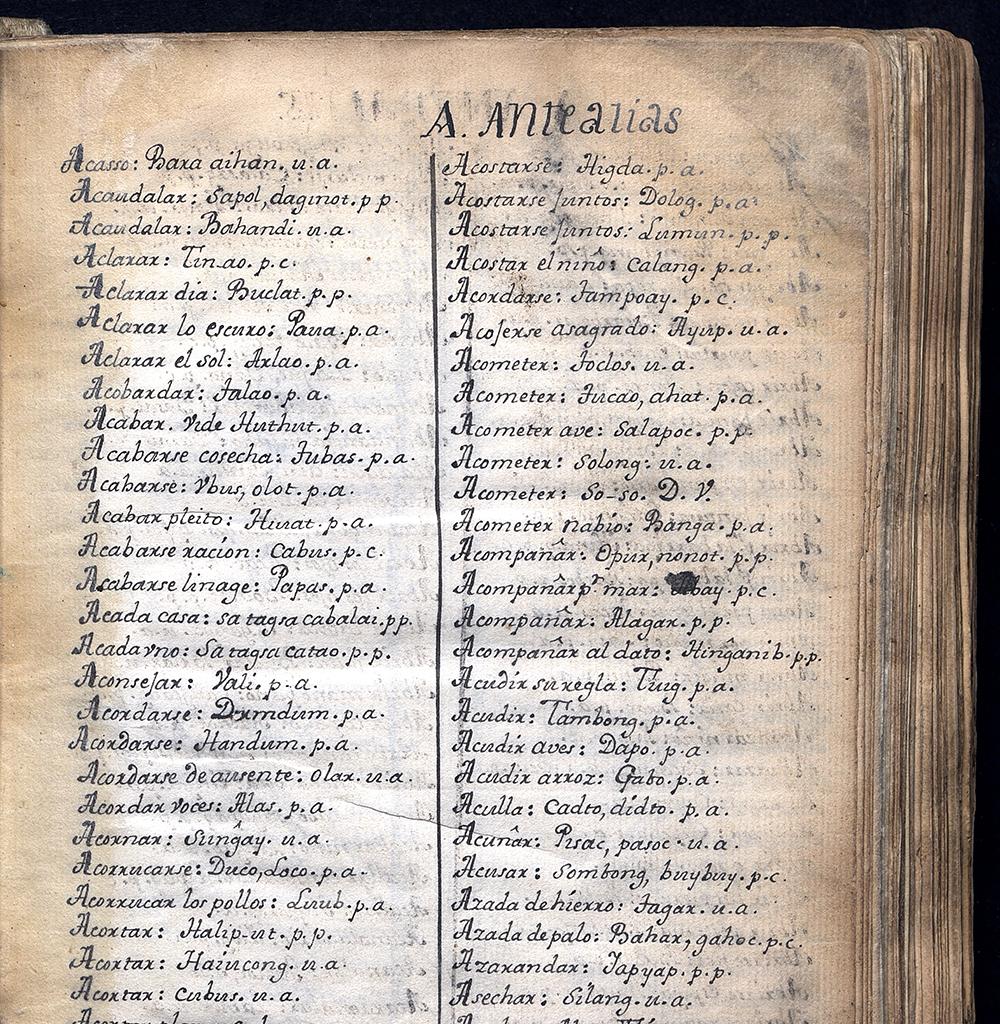 A. Antealias
Acasso: Bara aihan. u.a.
Acaudalar: Sapol, daginot. p p.
Acaudalar: Bahandi. u.a.
Aclarar: Tin-ao. p.c.
Aclarar dia: Buclat. p.p.
Aclarar lo escuro: Paua. p.a.
Aclarar el sol: Arlao. p.a.
Acobardar: Talao. p.a.
Acabar. Vide Huthut. p.a.
Acabarse cosecha: Tubas. p.a.
Acabarse: Vbus, olot. p.a.
Acabar pleito: Husat. p.a.
Acabarse racion: Cabus. p.c.
Acabarse linage: Papas. p.a.
Acada casa: sa tagsa cabalai. pp.
Acada vno: Sa tagsa catao. p.p.
Aconsejar: Vali. p.a.
Acordarse: Dumdum. p.a.
Acordarse: Handum. p.a.
Acordarse de ausente: Olar. u.a.
Acordar voces: Alas. p.a.
Acornar: Sungay. u.a.
Acorrucarse: Duco, Loco. p.a.
Acorrucar los pollos: Luub. p.a.
Acortar: Halip-ut. p.p.
Acortar: Haiucong. u.a.
Acortar: Cubus. u.a.
Acostarse: Higda. p.a.
Acostarse juntos: Dolog. p.a.
Acostarse juntos: Lumun. p.p.
Acostar el niño: Calang. p.a.
Acordarse: Tampoay. p.c.
Acojerse asagrado: Ayup. u.a.
Acometer: Toclos. u.a.
Acometer: Tucao, ahat. p.a.
Acometer ave: Salapoc. p.p.
Acometer: Solong. u.a.
Acometer: So-so. D. V.
Acometer nabio: Banga. p.a.
Acompañar: Opur, nonot. p.p.
Acompañar pr mar: p.c.
Acompañar: Alagar. p.p.
Acompañar al dato: Hinganib. p.p.
Acudir su regla: Tuig. p.a.
Acudir: Tambong. p.a.
Acudir aves: Dapo. p.a.
Acudir arroz: Gabo. p.a.
Aculla: Cadto, didto. p.a.
Acuñar: Pisac, pasoc. u.a.
Acusar: Sombong, buybuy. p.c.
Azada de hierro: Tagar. u.a.
Azada de palo: Bahar, gahoc. p.c.
Azarandar: Yapyap. p.p.
Asechar: Silang. u.a.